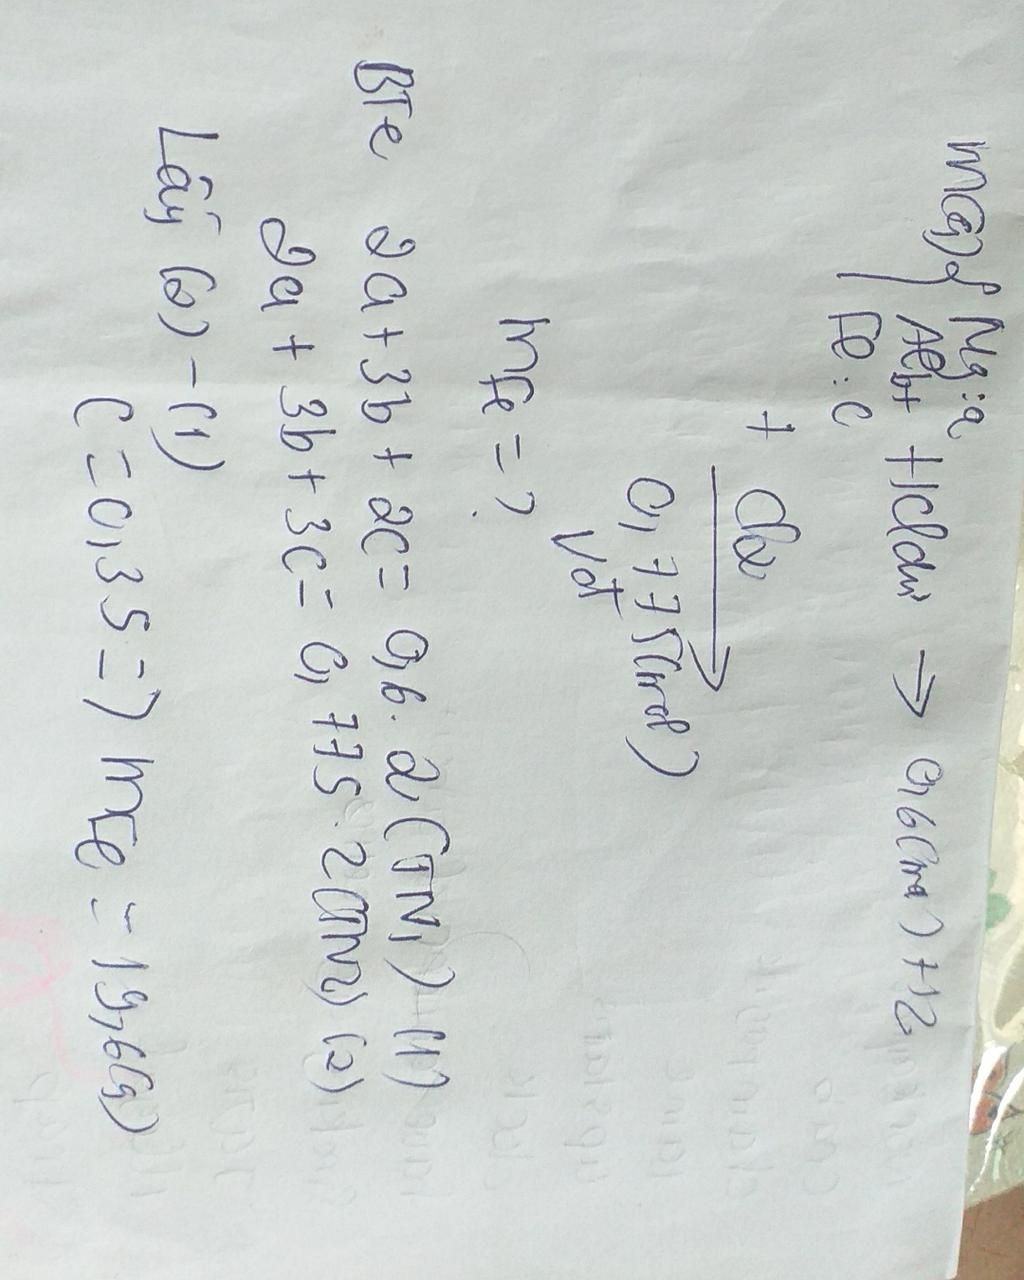 m(g) { Mg: a
Al: b + HCl dư → 0,6 (mol) H2
Fe: c
+ Cl2
0,775 (mol)
Vđ
mFe = ?
BTe 2a + 3b + 2c = 0,6.2 (TN1) (1)
2a + 3b + 3c = 0,775.2 (TN2) (2)
Lấy (2) - (1)
c = 0,35 => mFe = 19,6(g)